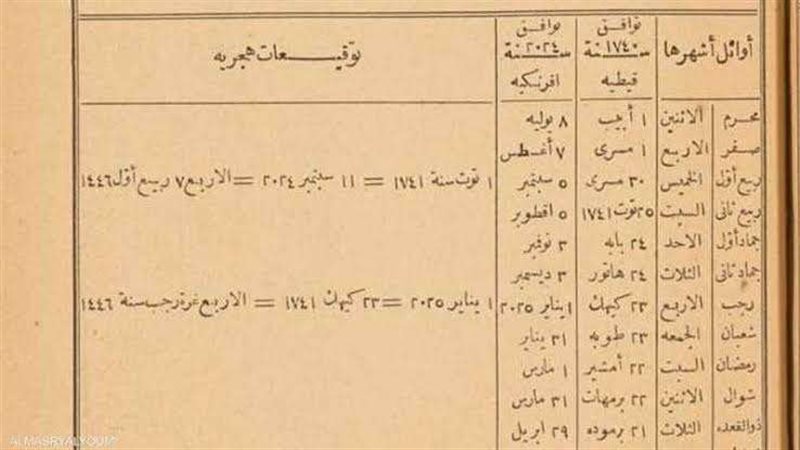 أوائل أشهرها | توافق سنة ١٧٤٠ قبطيه | توافق سنة ٢٠٢٤ افرنكيه | توقيعات هجريه
محرم | الاثنين | ١ أبيب | ٨ يوليه
صفر | الاربع | ١ مسرى | ٧ أغسطس
ربيع أول | الخميس | ٣٠ مسرى | ٥ سبتمبر | ١ توت سنة ١٧٤١ = ١١ سبتمبر ٢٠٢٤ = الاربع ٧ ربيع أول ١٤٤٦
ربيع ثانى | السبت | ٢٥ توت ١٧٤١ | ٥ اقطوبر
جماد أول | الاحد | ٢٤ بابه | ٣ نوفمبر
جماد ثانى | الثلاث | ٢٤ هاتور | ٣ ديسمبر
رجب | الاربع | ٢٣ كيهك | ١ يناير ٢٠٢٥ | ١ يناير ٢٠٢٥ = ٢٣ كيهك ١٧٤١ = الاربع غرة رجب سنة ١٤٤٦
شعبان | الجمعه | ٢٣ طوبه | ٣١ يناير
رمضان | السبت | ٢٢ أمشير | ١ مارس
شوال | الاثنين | ٢٢ برمهات | ٣١ مارس
ذوالقعده | الثلاث | ٢١ برموده | ٢٩ ابريل
ALMASRYALYOUM